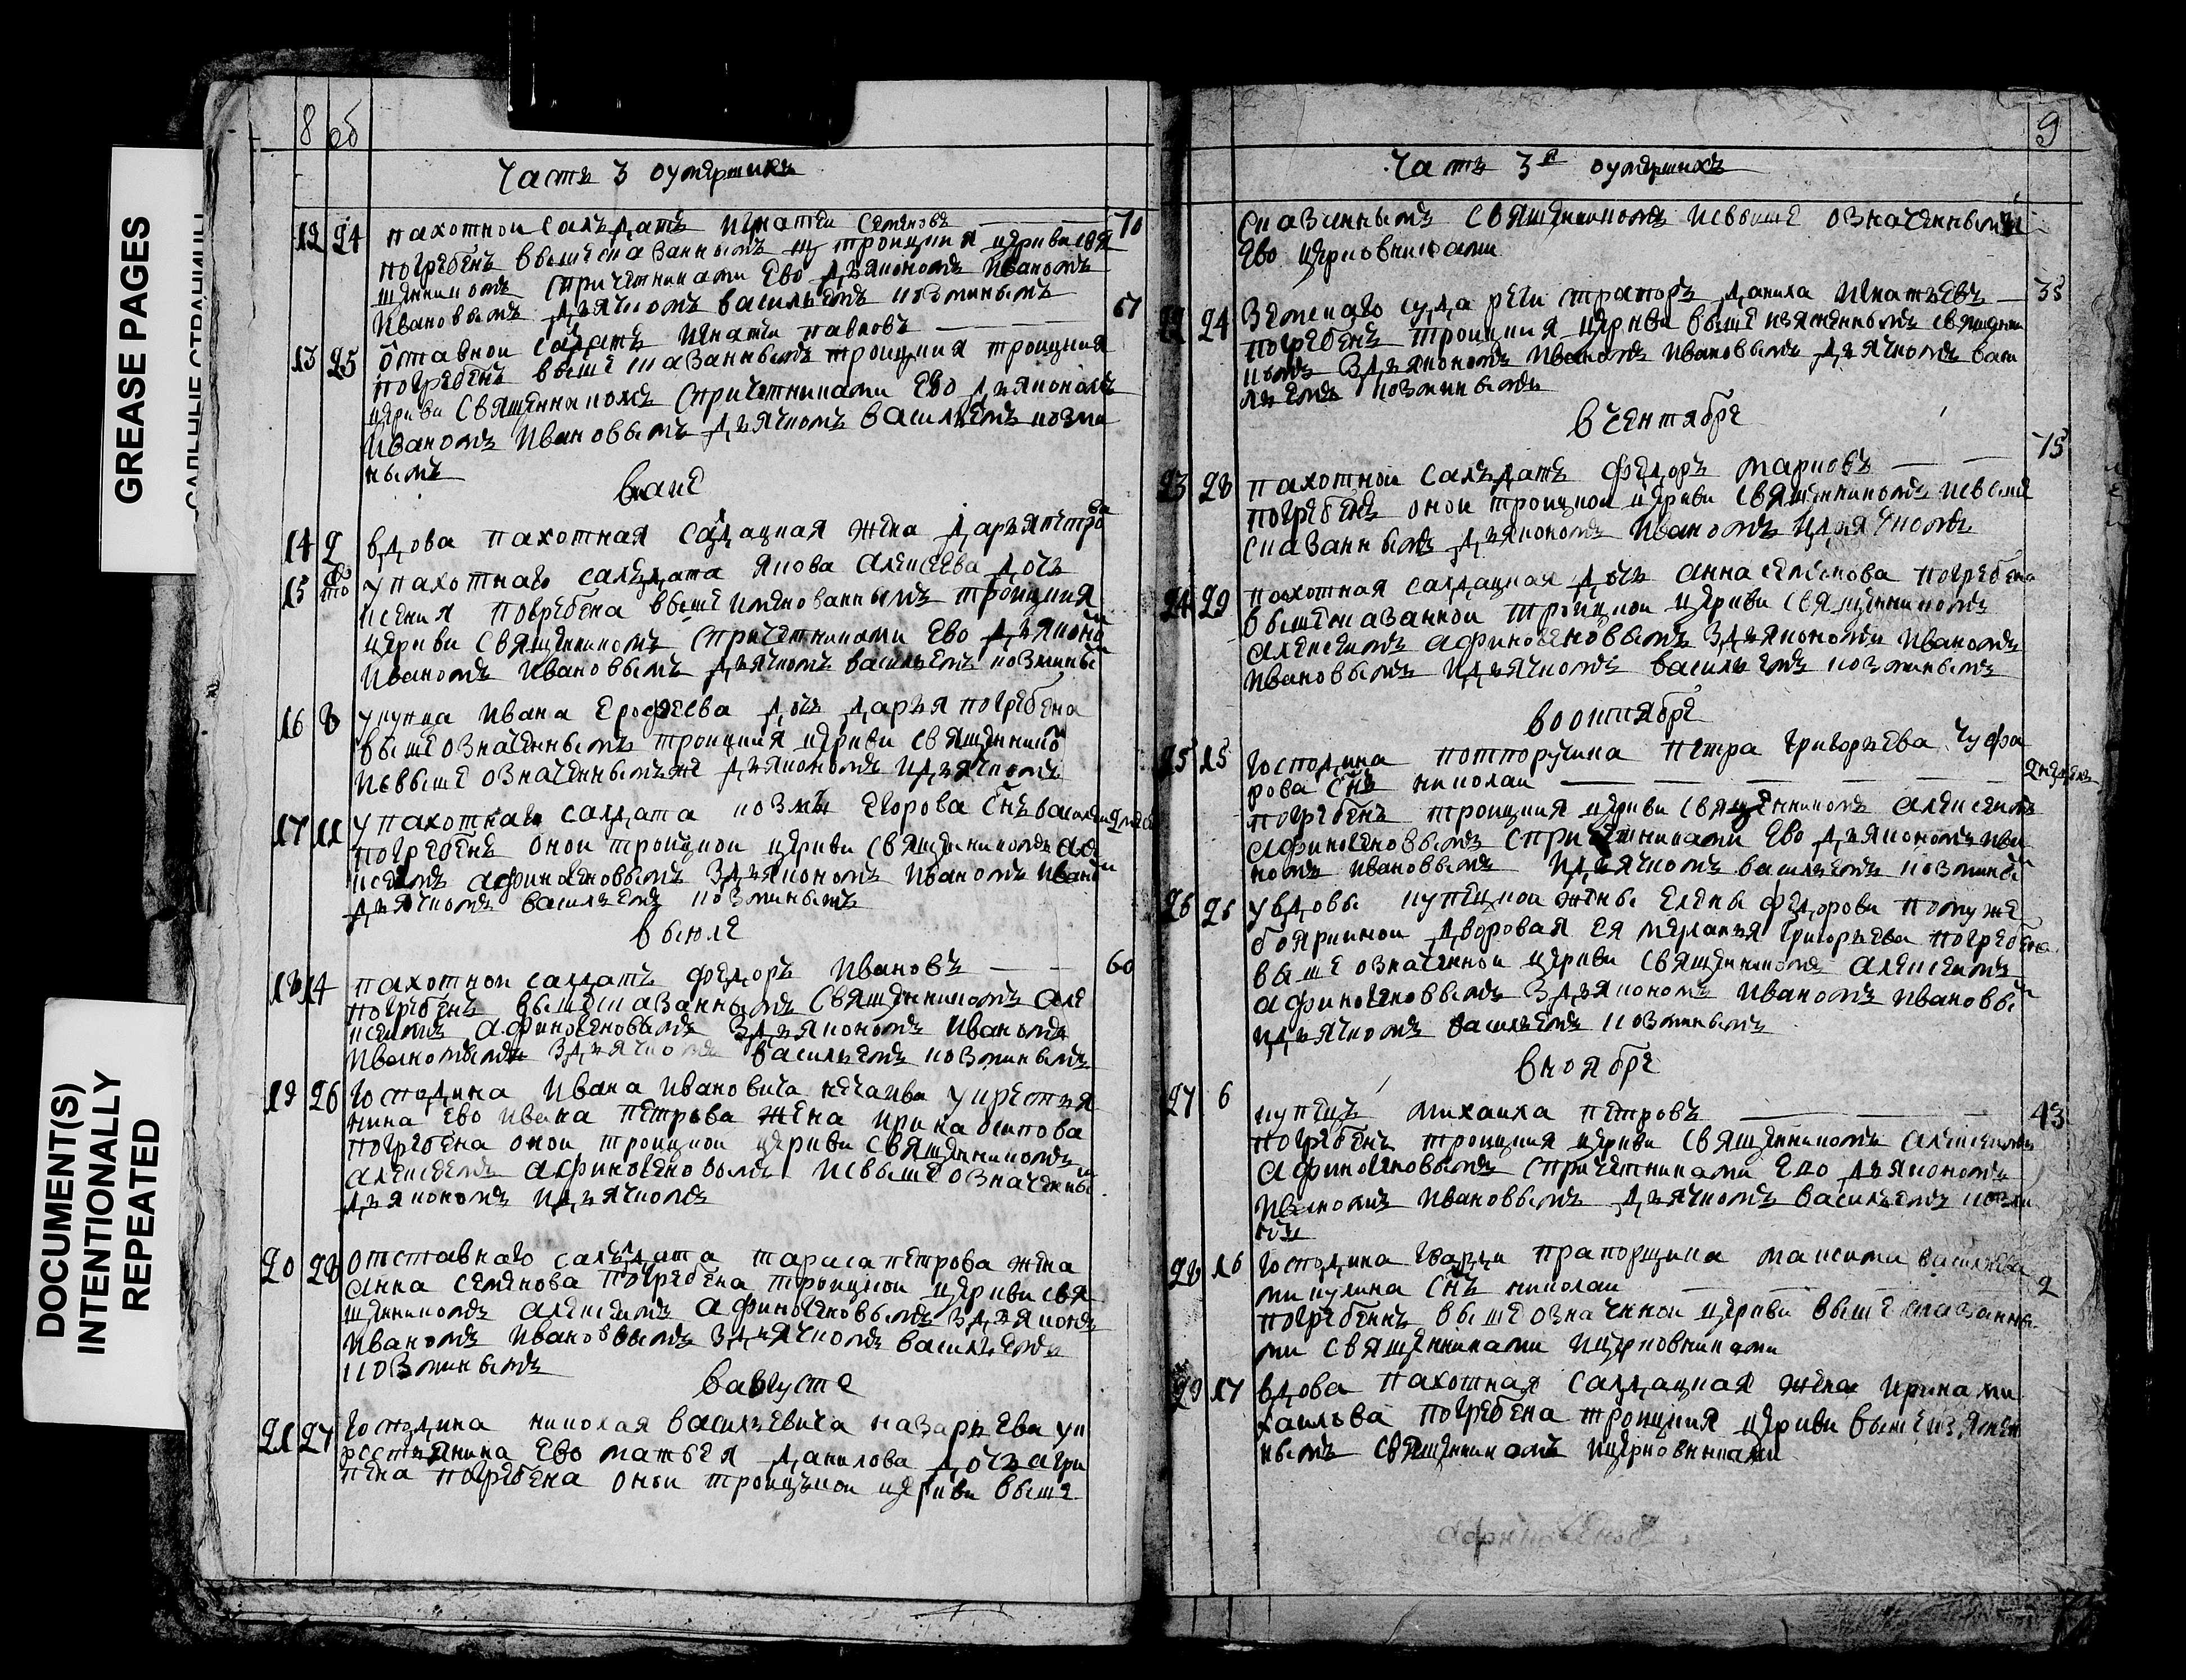 GREASE PAGES
DOCUMENT(S)
INTENTIONALLY
REPEATED
8 об
Часть 3 оумершихъ
12 24 пахотнои салъдатъ Игнатеи Семеновъ — 70
погребенъ вышесказаннымъ троицкия церкви свя
щенникомъ спричетниками Ево дьякономъ Иваномъ
Ивановымъ дьячкомъ васильемъ козминымъ
13 25 отставнои салдатъ Игнатеи павловъ — 67
погребенъ выше сказаннымъ троицкия троицкия
церкви священникомъ спричетниками Ево дьякономъ
Иваномъ Ивановымъ дьячкомъ васильемъ козми
нымъ
вмаие
14 2 вдова пахотная салдацкая жена Дарья петрова
15 то у пахотнаго салъдата якова алексеева дочь
ксения погребена выше имянованнымъ троицкия
церкви священникомъ спричетниками Ево дьяконо
Иваномъ Ивановымъ дьячкомъ васильемъ козминым
16 8 у купца Ивана Ерофеева дочь дарья погребена
выше означеннымъ троицкия церкви священнико
исвыше означеннымъ же дьякономъ идьячкомъ
17 11 у пахотнаго салдата козмы Егорова Снъ васил
погребенъ онои троицкои церкви священникомъ але
ксеемъ афиногеновымъ здьякономъ Иваномъ Ивано
дьячкомъ васильемъ козминымъ
в июле
18 14 пахотнои салдатъ федоръ Ивановъ — 60
погребенъ вышесказаннымъ священникомъ але
ксеимъ афиногеновымъ здьякономъ Иваномъ
Ивановымъ здьячкомъ васильемъ козминымъ
19 26 Господина Ивана Ивановича нечаива у крестья
нина Ево Ивана петрова жена ирина осипова
погребена онои троицкои церкви священникомъ
алексеемъ афиногеновымъ исвыше означеннымъ
дьякономъ идьячкомъ
20 28 отставнаго салъдата тараса петрова жена
анна семенова погребена троицкои церкви свя
щенникомъ алексеимъ афиногеновымъ здьякономъ
Иваномъ Ивановымъ здьячкомъ васильемъ
козминымъ
вавгусте
21 27 Господина николая васильевича назарьева у к
рестьянина Ево матвея данилова дочь агри
пена погребена онои троицкои церкви выше
9
Часть 3я оумершихъ
сказаннымъ священникомъ исвыше означенными
Ево церковниками
22 24 Земскаго суда регистраторъ данила Игнатьевъ — 35
погребенъ троицкия церкви выше изясненнымъ священни
комъ здьякономъ Иваномъ Ивановымъ дьячкомъ васи
льемъ козминымъ
в сентябре
23 28 пахотнои салъдатъ федоръ марковъ — 75
погребенъ онои троицкои церкви священникомъ исвыше
сказаннымъ дьякономъ Иваномъ идьячкомъ
24 29 пахотная салдацкая дочь анна семенова погребена
вышесказаннои троицкои церкви священникомъ
алексеимъ афиногеновымъ здьякономъ Иваномъ
Ивановымъ идьячкомъ васильемъ козминымъ
во октябре
25 15 Господина потпорутчика петра григорьева чуфа
рова Снъ николаи — 2 недели
погребенъ троицкия церкви священникомъ алексеимъ
афиногеновымъ спричетниками Ево дьякономъ ива
номъ Ивановымъ идьячкомъ васильемъ козминым
26 26 увдовы купецкои жены Елены федорови помуже
бояркинои дворовая Ея меланья григорьева погребена
выше означеннои церкви священникомъ алексеимъ
афиногеновымъ здьякономъ Иваномъ Ивановым
идьячкомъ васильемъ козминымъ
в ноябре
27 6 купецъ михаила петровъ — 43
погребенъ троицкия церкви священникомъ алексеимъ
афиногеновымъ спричетниками Ево дьякономъ
Иваномъ Ивановымъ дьячкомъ васильемъ козми
28 16 Господина гвардии прапорщика максима васильева
микулина Снъ николаи — 2
погребенъ выше означеннои церкви выше сказанны
ми священниками ицерковниками
29 17 вдова пахотная салдацкая жена ирина ми
хаилова погребена троицкия церкви выше изяснен
нымъ священникомъ ицерковниками